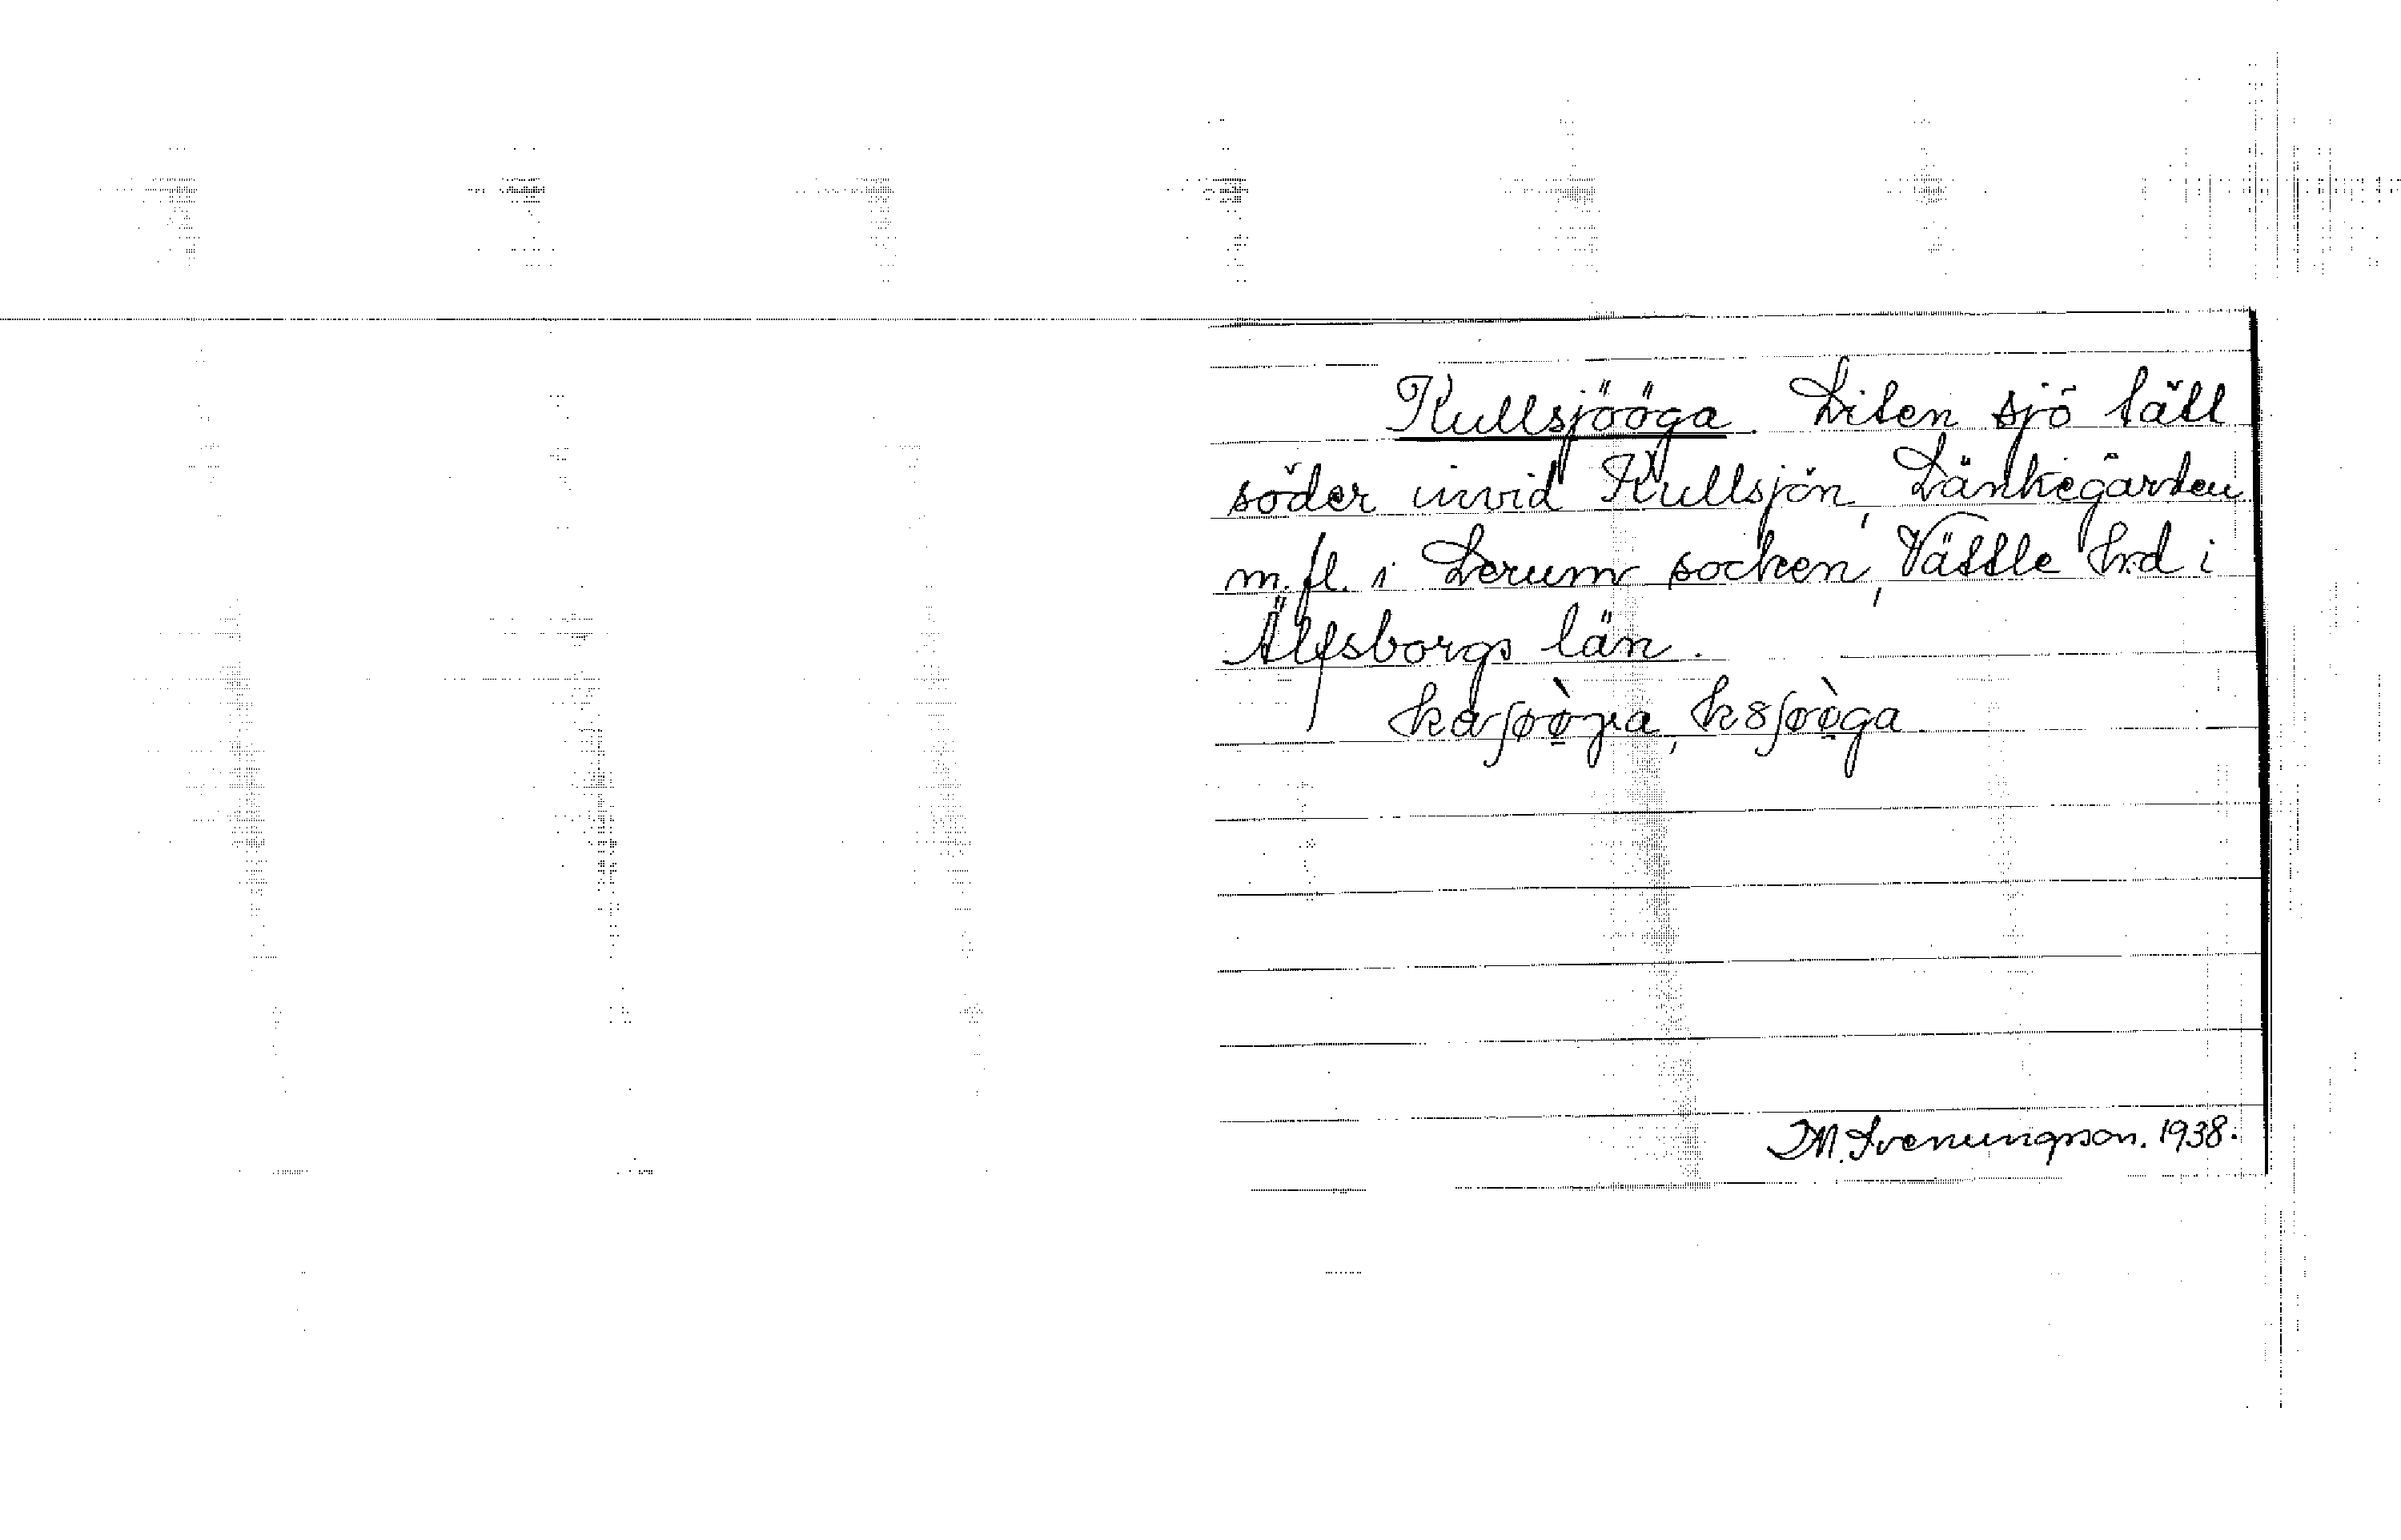 Kullsjööga. Liten sjö tätt
söder invid Kullsjön, Länkegården
m.fl. i Lerum socken, Vättle hrd i
Älfsborgs län.
JM. Svenungsson. 1938.